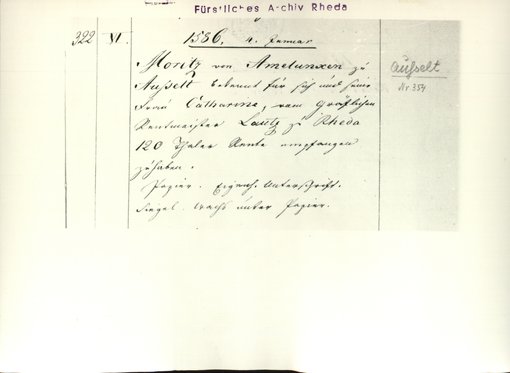 Fürstliches Archiv Rheda
322 VI. 1586, 4. Januar
Moritz von Amelunxen zu
Aufselt bekennt für sich und seine
Frau Catharine, vom Gräflichen
Rentmeister zu Rheda
120 Thaler Rente empfangen
zuhaben.
Papier. Eigenh. Unterschrift.
Siegel. Wachs unter Papier.
Aufselt.
Nr 354